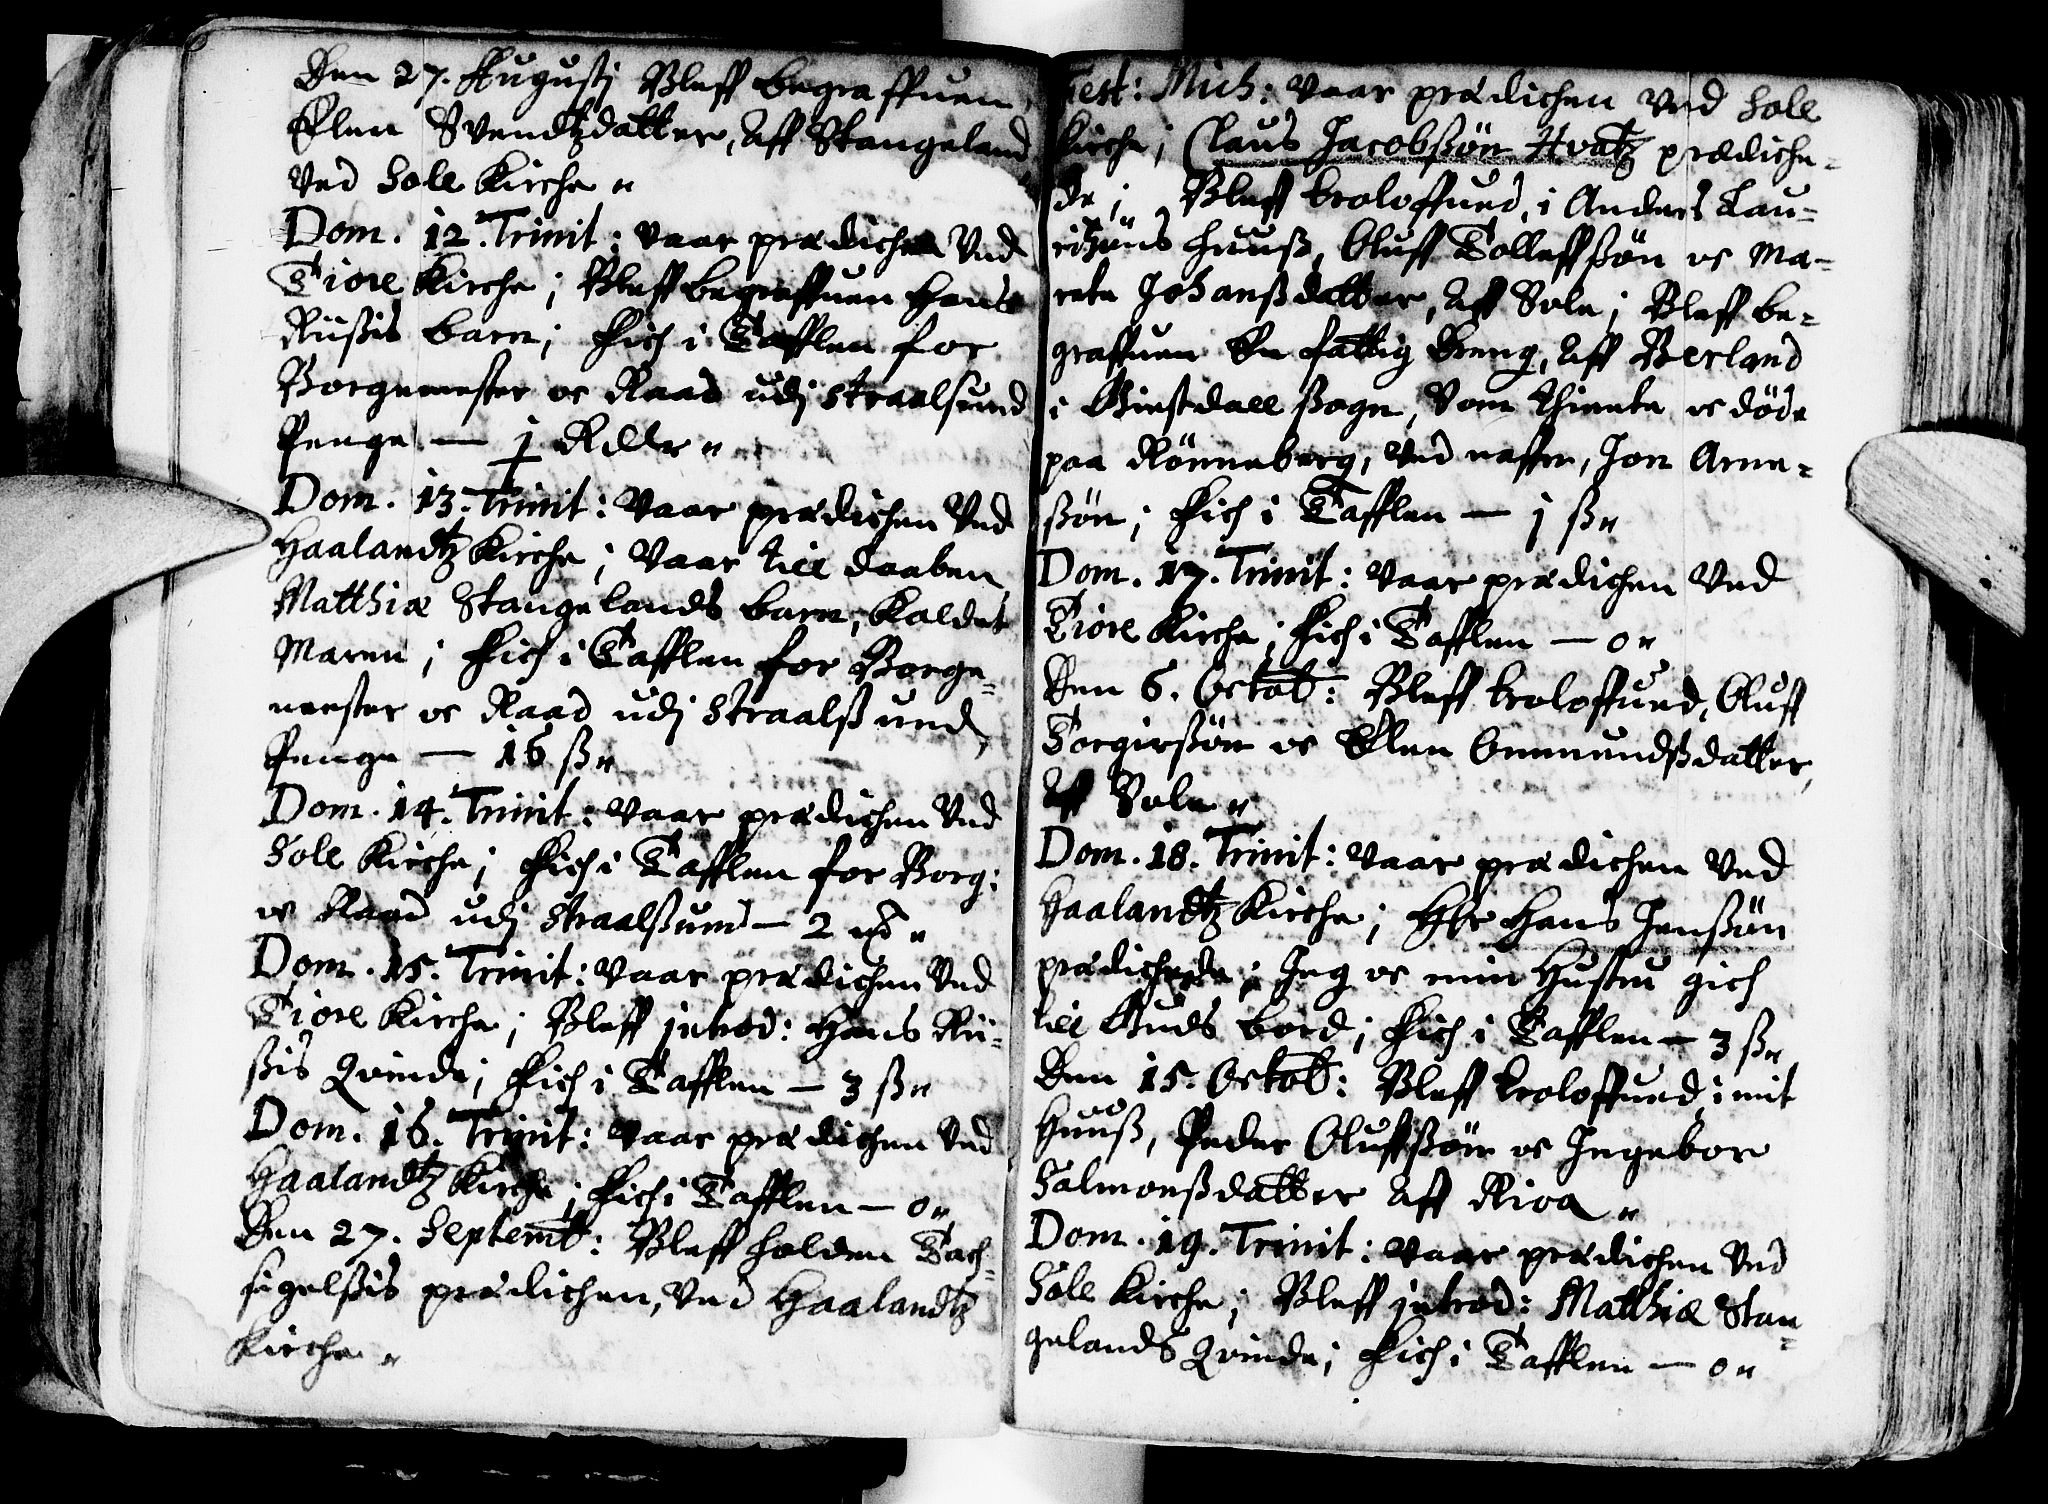 Den 27. Augustj Bleff begraffuen,
Elen Svendtzdatter, Aff Stangeland
ved Sole Kirche.,
Dom. 12. Trinit: vaar prædichen Ved
Tiore Kirche; Bleff begraffuen Hans
Riißis barn; Fich i Tafflen for
Borgemester oc Raad udj Straalsund
Penge — 1 Rdlr.,
Dom. 13. Trinit: vaar prædichen Ved
Haalandtz Kirche; vaar till daaben,
Matthiæ Stangelands barn, kaldet
Maren; Fich i Tafflen for Borge-
mester oc Raad udj Straalßund,
Penge — 16 ß.,
Dom. 14. Trinit: vaar prædichen Ved
Sole Kirche; Fich i Tafflen for Borg:
oc Raad udj Straalßund — 2
Dom. 15. Trinit: vaar prædichen Ved
Tiore Kirche; Bleff jntrod: Hans Rii-
ßis Qvinde; Fich i Tafflen — 3 ß.,
Dom. 16. Trinit: vaar prædichen Ved
Haalandtz Kirche; Fich i Tafflen — 0.,
Den 27. Septemb: Bleff holden Tach-
sigelßis prædichen, Ved Haalandtz
Kirche.,
Fest: Mich: vaar prædichen Ved Sole
Kirche; Claus Jacobßön Hvatz prædiche-
de; Bleff troloffued, i Anders Lau-
ritzöns Huuß, Oluff Tolleffßön oc Ma-
rete Johanßdatter, Aff Sole; Bleff be-
graffuen En fattig Dreng, Aff Berland
i Giestdall Sogn, Som thiente oc döde
paa Rönneberg, Ved naffn, Jon Arne-
ßön; Fich i Tafflen — 1 ß.,
Dom. 17. Trinit: vaar prædichen Ved
Tiore Kirche; Fich i Tafflen — 0.,
Den 6. Octob: Bleff troloffued, Oluff
Torgierßön oc Elen Ommundßdatter,
Aff Sole.,
Dom. 18. Trinit: vaar prædichen Ved
Haalandtz Kirche; Hr Hans Jenßön
prædichede; Jeg oc min Hustru gich
till Guds bord; Fich i Tafflen — 3 ß.,
Den 15. Octob: Bleff troloffued, i mit
Huuß, Peder Oluffßön oc Ingebor
Salmonßdatter Aff Rioa.,
Dom. 19. Trinit: vaar prædichen Ved
Sole Kirche; Bleff jntrod: Matthiæ Stan-
gelands Qvinde; Fich i Tafflen — 0.,